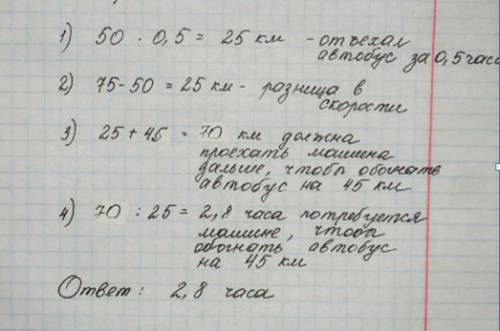 1) 50 · 0,5 = 25 км - отъехал
автобус за 0,5 часа
2) 75-50 = 25 км - разница в
скорости
3) 25 + 45 = 70 км должна
проехать машина
дальше, чтобы обогнать
автобус на 45 км
4) 70 : 25 = 2,8 часа потребуется
машине, чтобы
обогнать автобус
на 45 км
Ответ: 2,8 часа